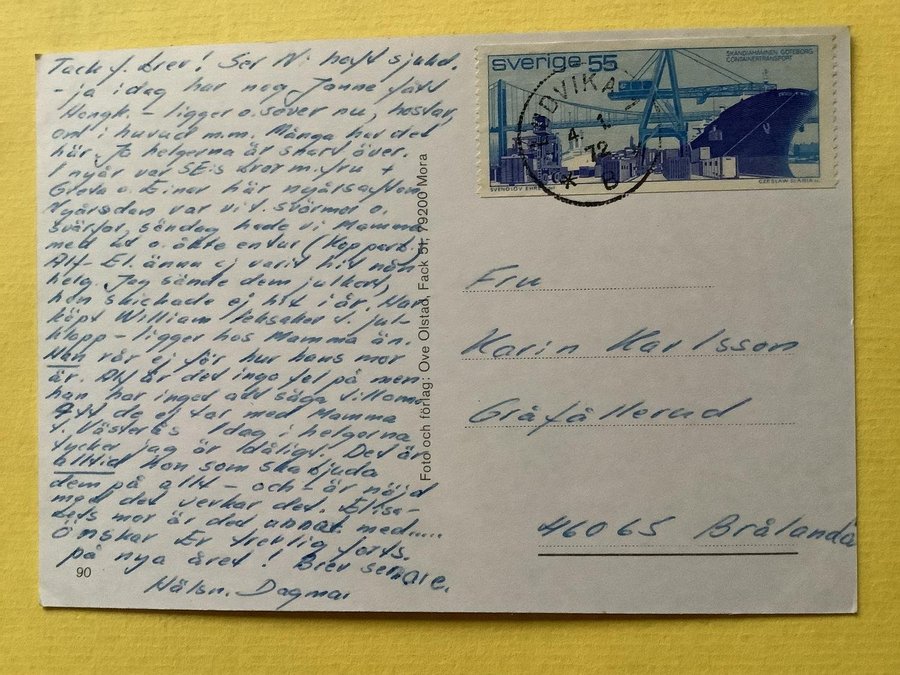 Tack f. brev! Ser Ni haft sjukd.
- ja idag har nog Janne fått
Hongk. - ligger o. sover nu, hostar,
ont i huvud m.m. Många har det
här. Ja helgerna är snart över.
I nyår var SE:s bror m. fru +
Greta o. Einar här nyårsafton.
Nyårsdan var vi t. svärmor o.
svärfar, söndag hade vi Mamma
med ut o. åkte en tur (Kopparb.)
Alf - El. ännu ej varit hit nån
helg. Jag sände dem julkort,
hon skickade ej hit i år. Har
köpt William leksaker t. jul-
klapp - ligger hos Mamma än.
Han rår ej för hur hans mor
är. Alf är det inga fel på men
han har inget att säga till om.
Att de ej tar med Mamma
t. Västerås 1 dag i helgerna
tycker jag är dåligt. Det är
alltid Hon som ska bjuda
dem på allt - och - är nöjd
med det verkar det. Elisa-
bets mor är det annat med.....
Önskar Er trevlig forts.
på nya året! Brev senare.
Hälsn. Dagmar
90
Foto och förlag: Ove Olstad, Fack 51, 79200 Mora
sverige 55
SKANDIAHAMNEN, GÖTEBORG
CONTAINERTRANSPORT
SVENOLOV EHRÉN
CZESLAW SLANIA sc.
LUDVIKA
4. 1. 72
* B
Fru
Karin Karlsson
Gråfällerud
46065 Brålanda